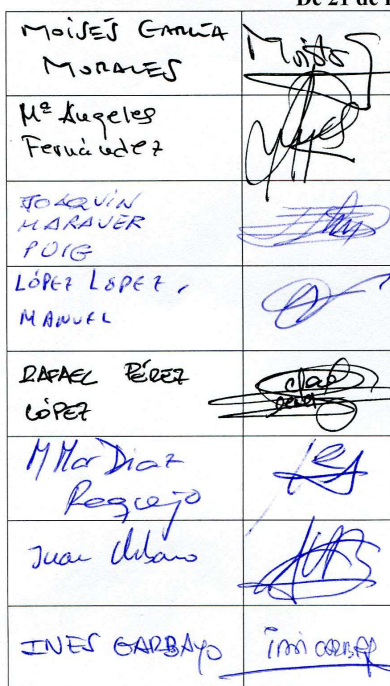 De 21 de
MOISÉS GARCÍA
MORALES
Moisés
Mª Angeles
Fernández
JOAQUÍN
MARAVER
POIG
LÓPEZ LÓPEZ,
MANUEL
RAFAEL PÉREZ
LÓPEZ
M Mar Diaz
Requejo
Juan Urbano
INES GARBAYO